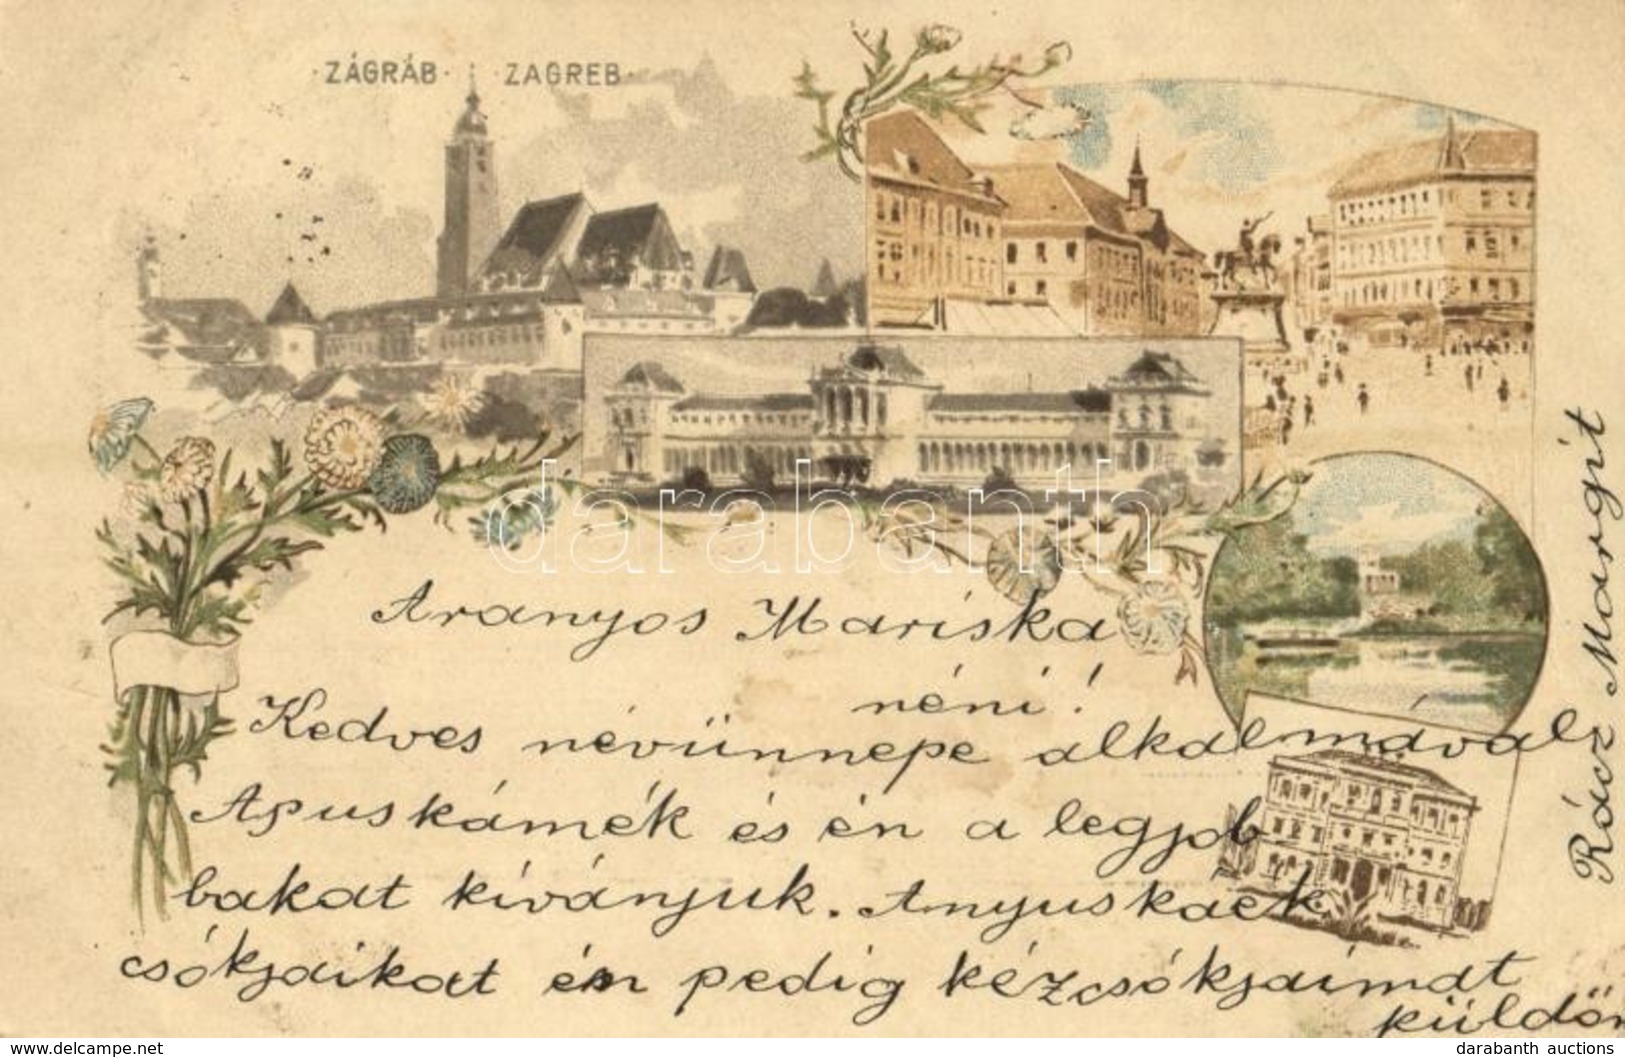 ·ZÁGRÁB· ZAGREB·
darabanth
Aranyos Mariska
néni!
Kedves névünnepe alkalmával
Apuskámék és én a legjob
bakat kívánjuk. Anyuskáék
csókjaikat én pedig kézcsókjaimat
küldöm
Rácz Margit
www.delcampe.net
darabanth auctions